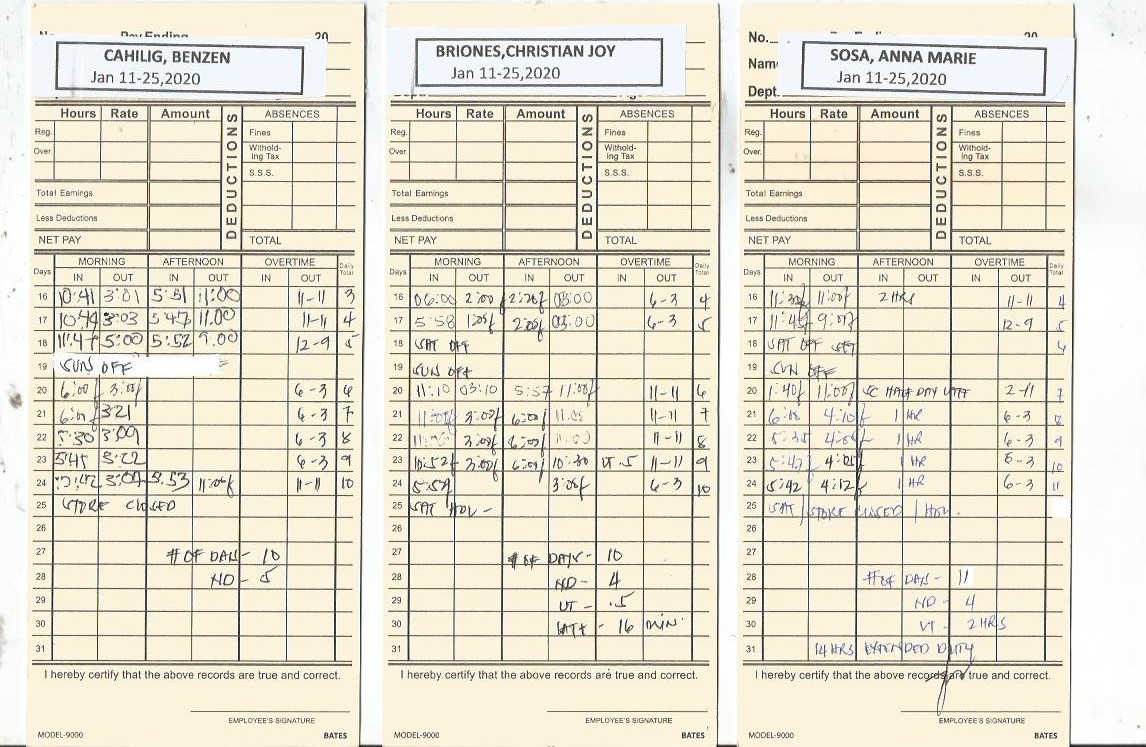 No. Pay Ending 20
CAHILIG, BENZEN
Jan 11-25,2020
Hours Rate Amount DEDUCTIONS ABSENCES
Reg. Fines
Over. Withold-ing Tax
S.S.S.
Total Earnings
Less Deductions
NET PAY TOTAL
Days MORNING AFTERNOON OVERTIME Daily Total
IN OUT IN OUT IN OUT
16 10:41 3:01 5:51 11:00 11-11 3
17 10:49 3:03 5:47 11.00 11-11 4
18 11:47 5:00 5:52 9.00 12-9 5
19 SUN OFF
20 6:00 6-3 6
21 3:21 6-3 7
22 5:30 3:09 6-3 8
23 5:45 3:22 6-3 9
24 11-11 10
25 STORE CLOSED
26
27 # OF DAYS - 10
28 ND - 5
29
30
31
I hereby certify that the above records are true and correct.
EMPLOYEE'S SIGNATURE
MODEL-9000 BATES
BRIONES,CHRISTIAN JOY
Jan 11-25,2020
Hours Rate Amount DEDUCTIONS ABSENCES
Reg. Fines
Over. Withold-ing Tax
S.S.S.
Total Earnings
Less Deductions
NET PAY TOTAL
Days MORNING AFTERNOON OVERTIME Daily Total
IN OUT IN OUT IN OUT
16 06:00 2:00 03:00 6-3 4
17 5:58 03:00 6-3 5
18 SAT OFF
19 SUN OFF
20 11:10 03:10 5:57 11-11 6
21 11-11 7
22 11-11 8
23 10:52 10:30 UT .5 11-11 9
24 6-3 10
25 SAT HOL -
26
27 # OF DAYS - 10
28 ND - 4
29 UT - .5
30 LATE - 16 MIN
31
I hereby certify that the above records are true and correct.
EMPLOYEE'S SIGNATURE
MODEL-9000 BATES
No.
Name
Dept.
SOSA, ANNA MARIE
Jan 11-25,2020
Hours Rate Amount DEDUCTIONS ABSENCES
Reg. Fines
Over. Withold-ing Tax
S.S.S.
Total Earnings
Less Deductions
NET PAY TOTAL
Days MORNING AFTERNOON OVERTIME Daily Total
IN OUT IN OUT IN OUT
16 2 HRS 11-11 4
17 12-9 5
18 SAT OFF
19 SUN OFF
20 HALF DAY 2-11 7
21 1 HR 6-3 8
22 1 HR 6-3 9
23 1 HR 6-3 10
24 5:42 4:12 1 HR 6-3 11
25 SAT / STORE CLOSED / HOL.
26
27
28 # OF DAYS - 11
29 ND - 4
30 UT - 2 HRS
31 14 HRS EXTENDED DUTY
I hereby certify that the above records are true and correct.
EMPLOYEE'S SIGNATURE
MODEL-9000 BATES